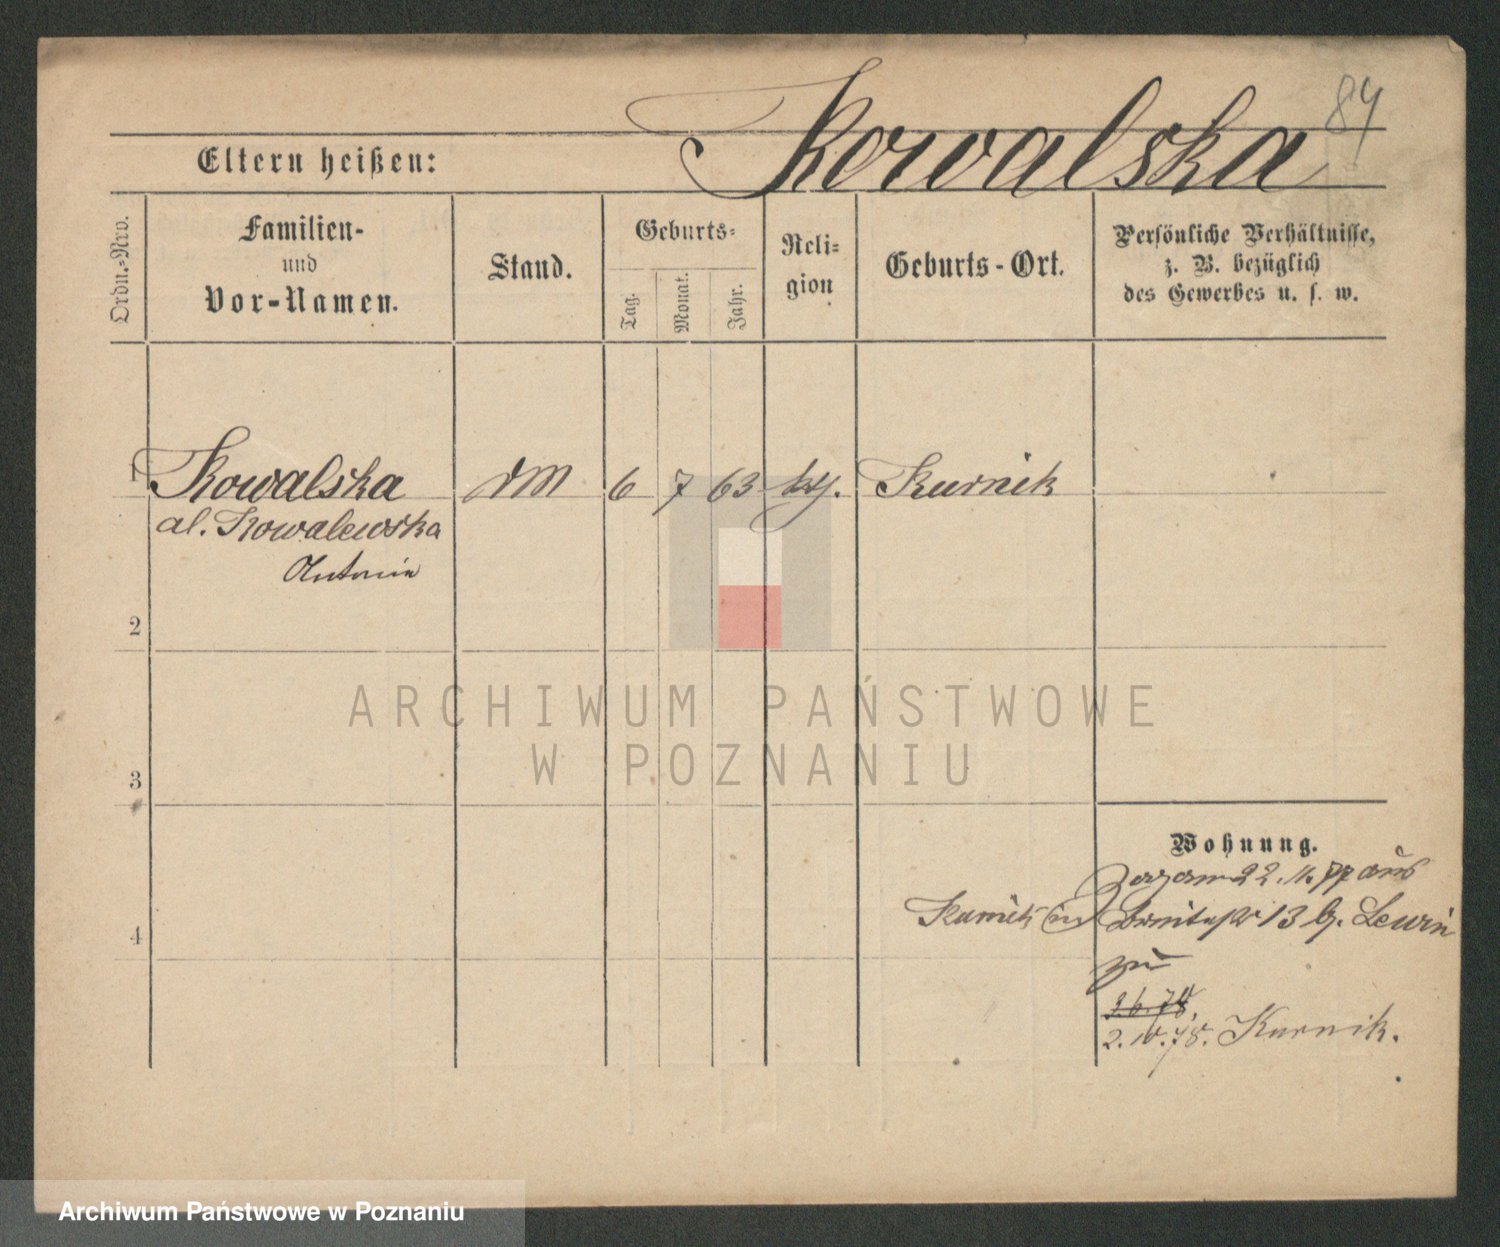 84
Kowalska
Eltern heißen:
Ordn.-Nro.
Familien-
und
Vor-Namen.
Stand.
Geburts-
Tag.
Monat.
Jahr.
Reli-
gion
Geburts-Ort.
Persönliche Verhältnisse,
z. B. bezüglich
des Gewerbes u. s. w.
1 Kowalska 6 7 63 Kurnik
al. Kowalewska
Antonie
2
ARCHIWUM PAŃSTWOWE
W POZNANIU
3
Wohnung.
22. 11. 77 aus
Kurnik in 13 b. Lewin
4
zu
2.6.78.
2.10.78. Kurnik.
Archiwum Państwowe w Poznaniu